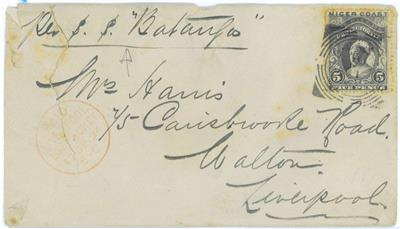 Per S. S. "Batanga"
NIGER COAST
Mrs Harris
75 Carisbrooke Road.
5 5
FIVE PENCE
Walton.
Liverpool.